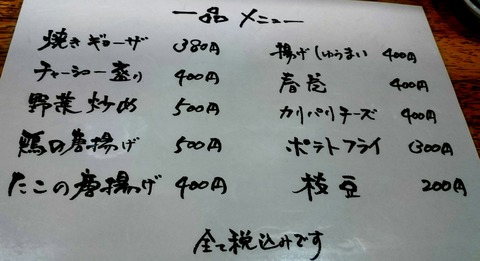 一品メニュー
焼きギョーザ 380円
チャーシュー盛り 400円
野菜炒め 500円
鶏の唐揚げ 500円
たこの唐揚げ 400円
揚げしゅうまい 400円
春巻 400円
カリパリチーズ 400円
ポテトフライ 300円
枝豆 200円
全て税込みです